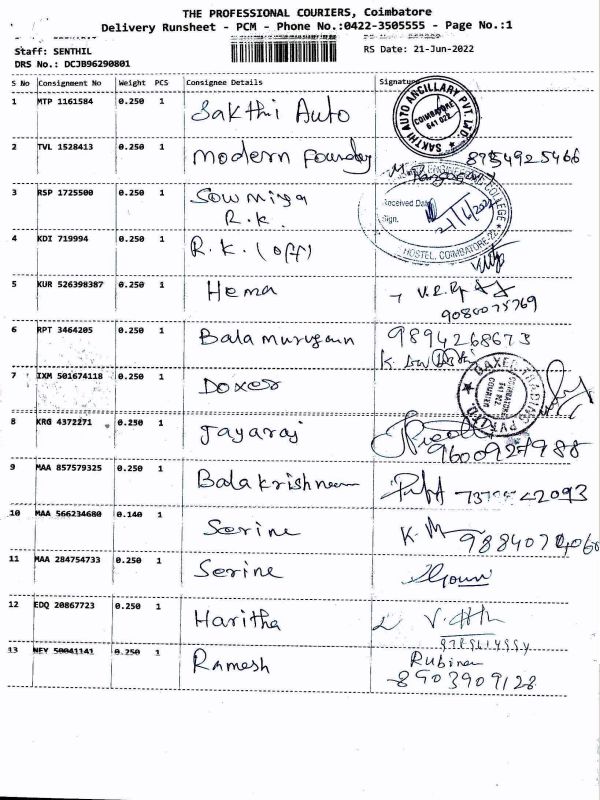 THE PROFESSIONAL COURIERS, Coimbatore
Delivery Runsheet - PCM - Phone No.:0422-3505555 - Page No.:1
Staff: SENTHIL
RS Date: 21-Jun-2022
DRS No.: DCJB96290801
S No Consignment No Weight PCS Consignee Details Signature
1 MTP 1161584 0.250 1 Sakthi Auto
SAKTHI AUTO ANCILLARY PVT. LTD. COIMBATORE 641 021
2 TVL 1528413 0.250 1 Modern Foundry
3 RSP 1725500 0.250 1 Sowmiya
R.K.
Received Date
Sign.
HOSTEL, COIMBATORE-22
4 KDI 719994 0.250 1 R.K. (off)
5 KUR 526398387 0.250 1 Hema
6 RPT 3464205 0.250 1 Balamurugan 9894268673
7 IXM 501674118 0.250 1 Doxer
8 KRG 4372271 0.250 1 Jayaraj
9600927988
9 MAA 857579325 0.250 1 Balakrishnan
10 MAA 566234680 0.140 1 Serine K.
11 MAA 284754733 0.250 1 Serine
12 EDQ 20867723 0.250 1 Haritha
13 NEY 50041141 0.250 1 Ramesh
8903909128